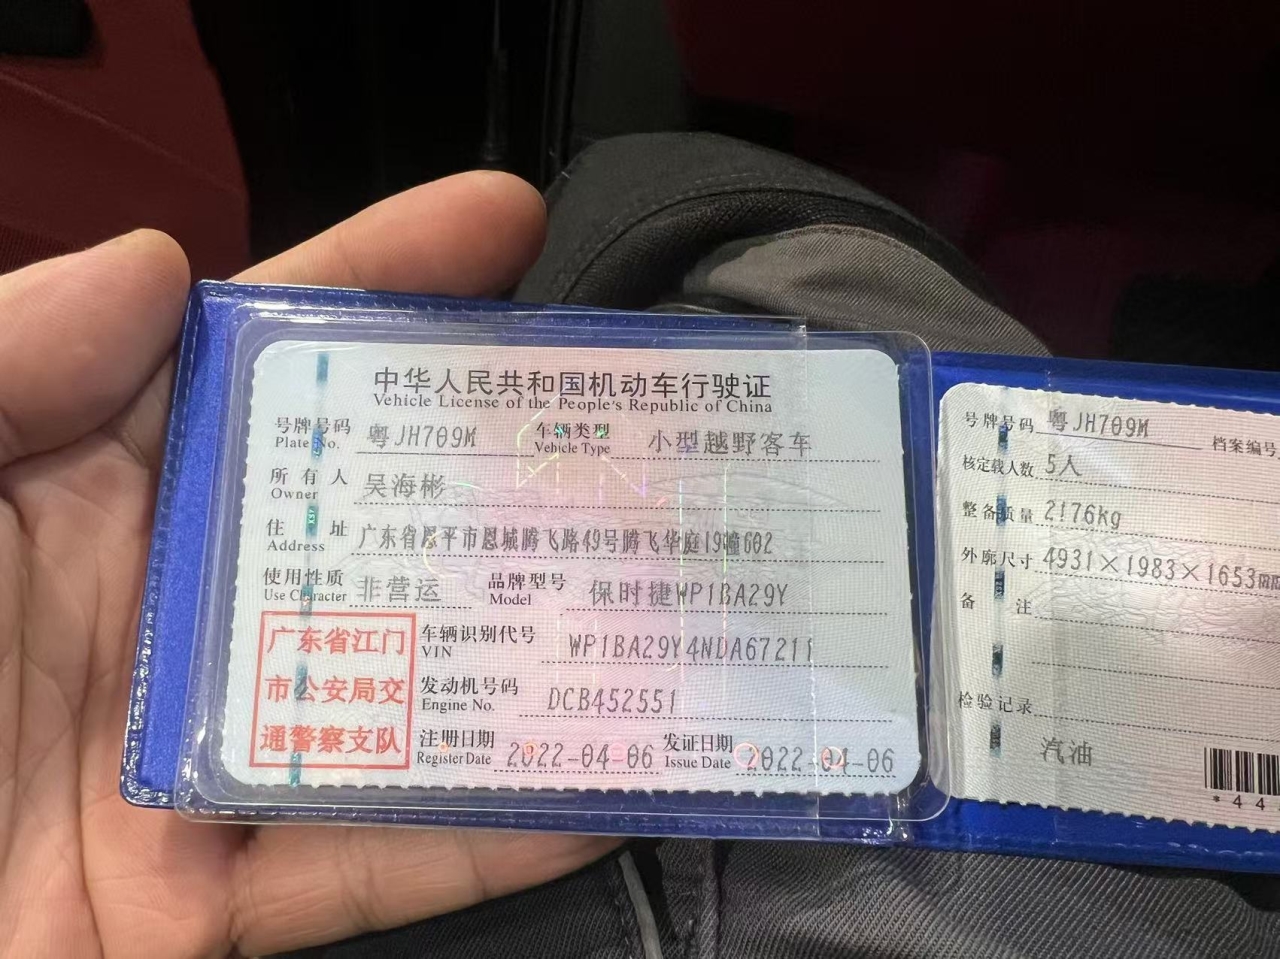 中华人民共和国机动车行驶证
Vehicle License of the People's Republic of China
号牌号码 粤JH709M 车辆类型 小型越野客车
Plate No. Vehicle Type
所有人 吴海彬
Owner
住址 广东省恩平市恩城腾飞路49号腾飞华庭19幢602
Address
使用性质 非营运 品牌型号 保时捷WP1BA29Y
Use Character Model
广东省江门
市公安局交
通警察支队
车辆识别代号 WP1BA29Y4NDA67211
VIN
发动机号码 DCB452551
Engine No.
注册日期 2022-04-06 发证日期 2022-04-06
Register Date Issue Date
号牌号码 粤JH709M 档案编号
核定载人数 5人
整备质量 2176kg
外廓尺寸 4931×1983×1653mm
备注
检验记录
汽油
*44